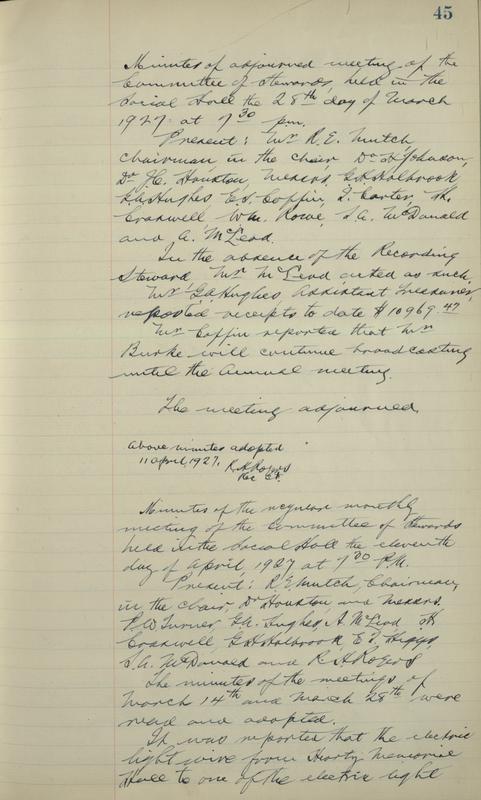 45
Minutes of adjourned meeting of the
Committee of Stewards, held in the
Social Hall the 28th day of March
1927 at 7 30 pm.
Present: Mr R.E. Mutch
chairman in the chair Dr Johnson,
Dr J.C. Houston, Messrs. G.H. Holbrook
G.A. Hughes E.S. Coffin, J. Carter, H.
Crasswell Wm. Rowe, S.A. McDonald
and A. McLeod.
In the absence of the Recording
Steward, Mr McLeod acted as such.
Mr G.A. Hughes, Assistant Treasurer,
reported receipts to date $10969.47
Mr Coffin reported that Mr
Burke will continue broadcasting
until the annual meeting.
The meeting adjourned.
Above minutes adopted
11 April, 1927. R.H. Rogers
Rec
Minutes of the regular monthly
meeting of the Committee of Stewards
held in the Social Hall the eleventh
day of April, 1927 at 7 00 P.M.
Present: R.E. Mutch, Chairman,
in the chair, Dr Houston and Messrs.
P.W. Turner, G.A. Hughes, A. McLeod, H
Crasswell, G.H. Holbrook, E.T. Higgs,
S.A. McDonald and R.H. Rogers
The minutes of the meetings of
March 14th and March 28th were
read and adopted.
It was reported that the electric
light wire from Heartz Memorial
Hall to one of the electric light